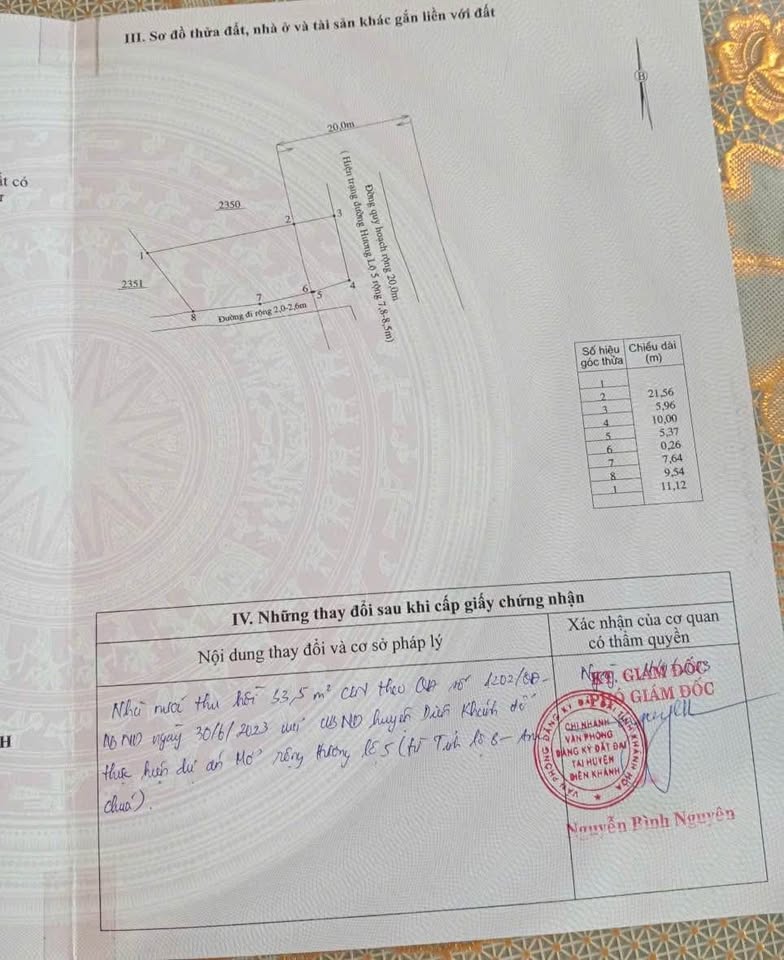 III. Sơ đồ thửa đất, nhà ở và tài sản khác gắn liền với đất
B
20,0m
ất có
2350
2351
1
2
3
4
5
6
7
8
Đờng quy hoạch rộng 20,0m
( Hiện trạng đường Hương Lộ 5 rộng 7,8-8,5m)
Đường đi rộng 2,0-2,6m
Số hiệu góc thửa
Chiều dài (m)
1
2
3
4
5
6
7
8
1
21,56
5,96
10,00
5,37
0,26
7,64
9,54
11,12
IV. Những thay đổi sau khi cấp giấy chứng nhận
Nội dung thay đổi và cơ sở pháp lý
Xác nhận của cơ quan
có thẩm quyền
Nhà nước thu hồi 53,5 m² CLN theo QĐ số 1202/QĐ-
UBND ngày 30/6/2023 của UBND huyện Diên Khánh để
thực hiện dự án Mở rộng Hương lộ 5 (từ Tỉnh lộ 8 - Am
chúa).
KT. GIÁM ĐỐC
PHÓ GIÁM ĐỐC
VĂN PHÒNG ĐĂNG KÝ ĐẤT ĐAI TỈNH KHÁNH HÒA
CHI NHÁNH
VĂN PHÒNG
ĐĂNG KÝ ĐẤT ĐAI
TẠI HUYỆN
DIÊN KHÁNH
Nguyễn Bình Nguyên
H